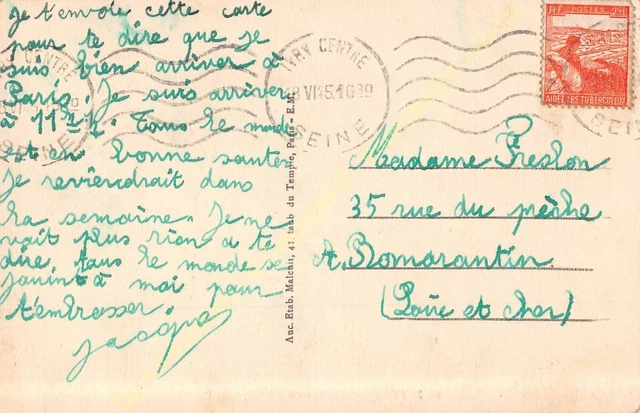 Je t'envoie cette carte
pour te dire que je
suis bien arriver à
Paris. Je suis arriver
à 11 h ½. Tous le monde
est en bonne santer
Je reviendrait dans
la semaine. Je ne
voit plus rien a te
dire tous le monde se
joint à moi pour
t'embrasser
Anc. Etab. Malcuit, 41 faub du Temple, Paris - E.M.
IVRY CENTRE
SEINE
CENTRE
SEINE
RF POSTES 2F
AIDEZ LES TUBERCULEUX
Madame Freslon
35 rue du pêche
A. Romorantin
(Loir et cher)